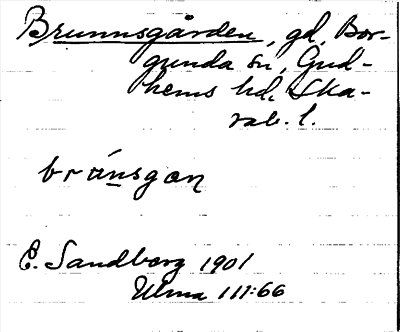 Brunnsgården, gd, Bor-
gunda sn, Gud-
hems hd, Ska-
rab. l.
brúnsgan
E. Sandberg 1901
Ulma 111:66